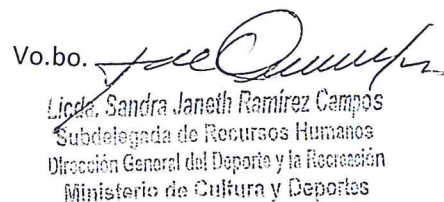 Vo.bo.
Licda. Sandra Janeth Ramírez Campos
Subdelegada de Recursos Humanos
Dirección General del Deporte y la Recreación
Ministerio de Cultura y Deportes